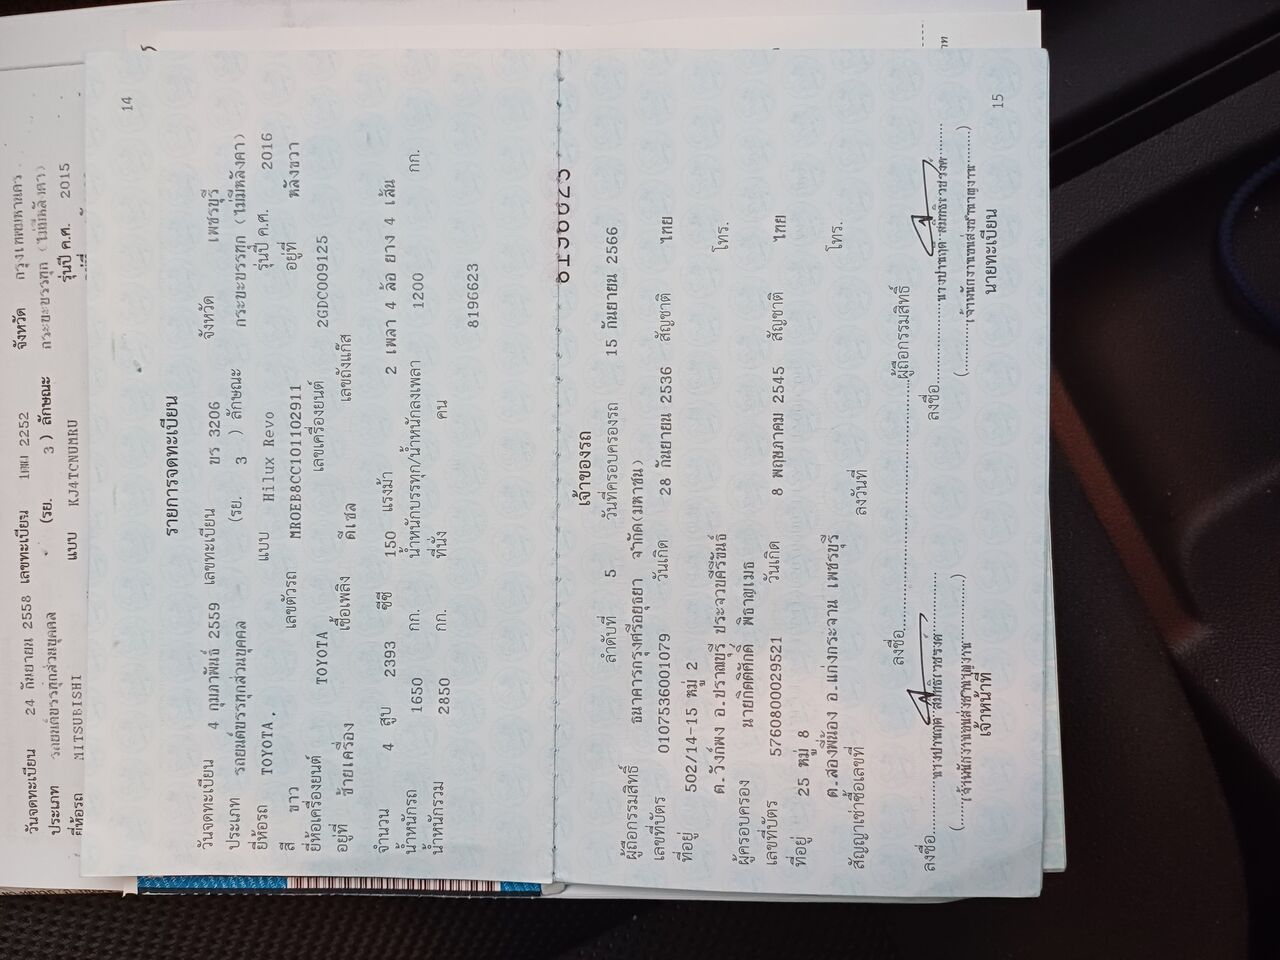 วันจดทะเบียน 24 กันยายน 2558 เลขทะเบียน 2252 จังหวัด กรุงเทพมหานคร
ประเภท รถยนต์บรรทุกส่วนบุคคล (รย. 3 ) ลักษณะ กระบะบรรทุก (ไม่มีหลังคา)
ยี่ห้อรถ MITSUBISHI แบบ KJ4TCNUMRU รุ่นปี ค.ศ. 2015
14
รายการจดทะเบียน
วันจดทะเบียน 4 กุมภาพันธ์ 2559 เลขทะเบียน บร 3206 จังหวัด เพชรบุรี
ประเภท รถยนต์บรรทุกส่วนบุคคล (รย. 3 ) ลักษณะ กระบะบรรทุก (ไม่มีหลังคา)
ยี่ห้อรถ TOYOTA. แบบ Hilux Revo รุ่นปี ค.ศ. 2016
สี ขาว เลขตัวรถ MROEB8CC101102911 อยู่ที่ หลังขวา
ยี่ห้อเครื่องยนต์ TOYOTA เลขเครื่องยนต์ 2GDC009125
อยู่ที่ ซ้ายเครื่อง เชื้อเพลิง ดีเซล เลขถังแก๊ส
จำนวน 4 สูบ 2393 ซีซี 150 แรงม้า 2 เพลา 4 ล้อ ยาง 4 เส้น
น้ำหนักรถ 1650 กก. น้ำหนักบรรทุก/น้ำหนักลงเพลา 1200 กก.
น้ำหนักรวม 2850 กก. ที่นั่ง คน
8196623
8196623
เจ้าของรถ
ลำดับที่ 5 วันที่ครอบครองรถ 15 กันยายน 2566
ผู้ถือกรรมสิทธิ์ ธนาคารกรุงศรีอยุธยา จำกัด(มหาชน)
เลขที่บัตร 0107536001079 วันเกิด 28 กันยายน 2536 สัญชาติ ไทย
ที่อยู่ 502/14-15 หมู่ 2
ต.วังก์พง อ.ปราณบุรี ประจวบคีรีขันธ์ โทร.
ผู้ครอบครอง นายกิตติศักดิ์ พิธาญเมธ
เลขที่บัตร 5760800029521 วันเกิด 8 พฤษภาคม 2545 สัญชาติ ไทย
ที่อยู่ 25 หมู่ 8
ต.สองพี่น้อง อ.แก่งกระจาน เพชรบุรี โทร.
สัญญาเช่าซื้อเลขที่ ลงวันที่
ลงชื่อ ผู้ถือกรรมสิทธิ์
ลงชื่อ ลงชื่อ
(เจ้าพนักงานขนส่งชำนาญงาน) (เจ้าพนักงานขนส่งชำนาญงาน)
เจ้าหน้าที่ นายทะเบียน
15